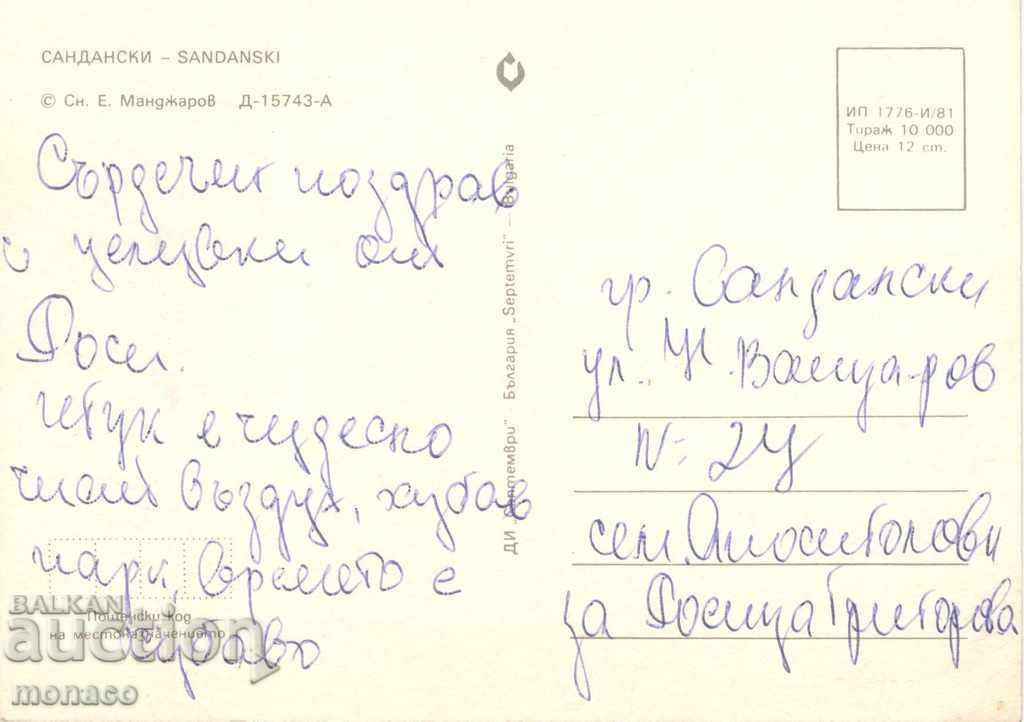 САНДАНСКИ – SANDANSKI
© Сн. Е. Манджаров Д-15743-А
Сърдечен поздрав
и целувки от
Роси.
тук е чудесно
чист въздух, хубав
парк, времето е
хубаво
Пощенски код
на местоназначението
ДИ „Септември" – България „Septemvri" – Bulgaria
ИП 1776-И/81
Тираж 10 000
Цена 12 ст.
гр. Сандански
ул. Вапцаров
N: 24
сем. Апостолови
за Росица Григорова
BALKAN
auction
monaco